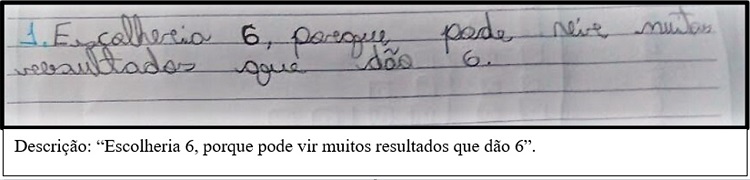 1. Escolheria 6, porque pode vir muitos
resultados que dão 6.
Descrição: “Escolheria 6, porque pode vir muitos resultados que dão 6”.